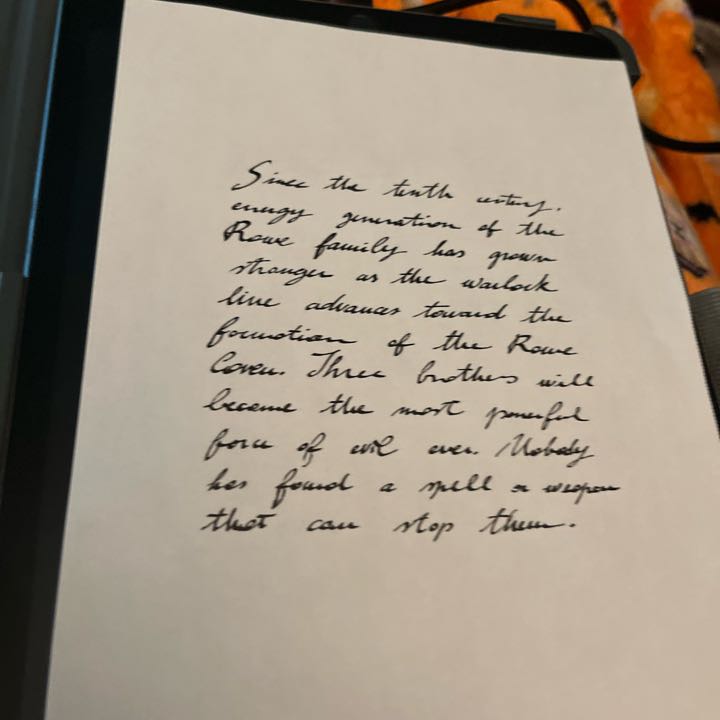 Since the tenth century.
every generation of the
Rowe family has grown
stronger as the warlock
line advances toward the
formation of the Rowe
Coven. Three brothers will
become the most powerful
force of evil ever. Nobody
has found a spell or weapon
that can stop them.